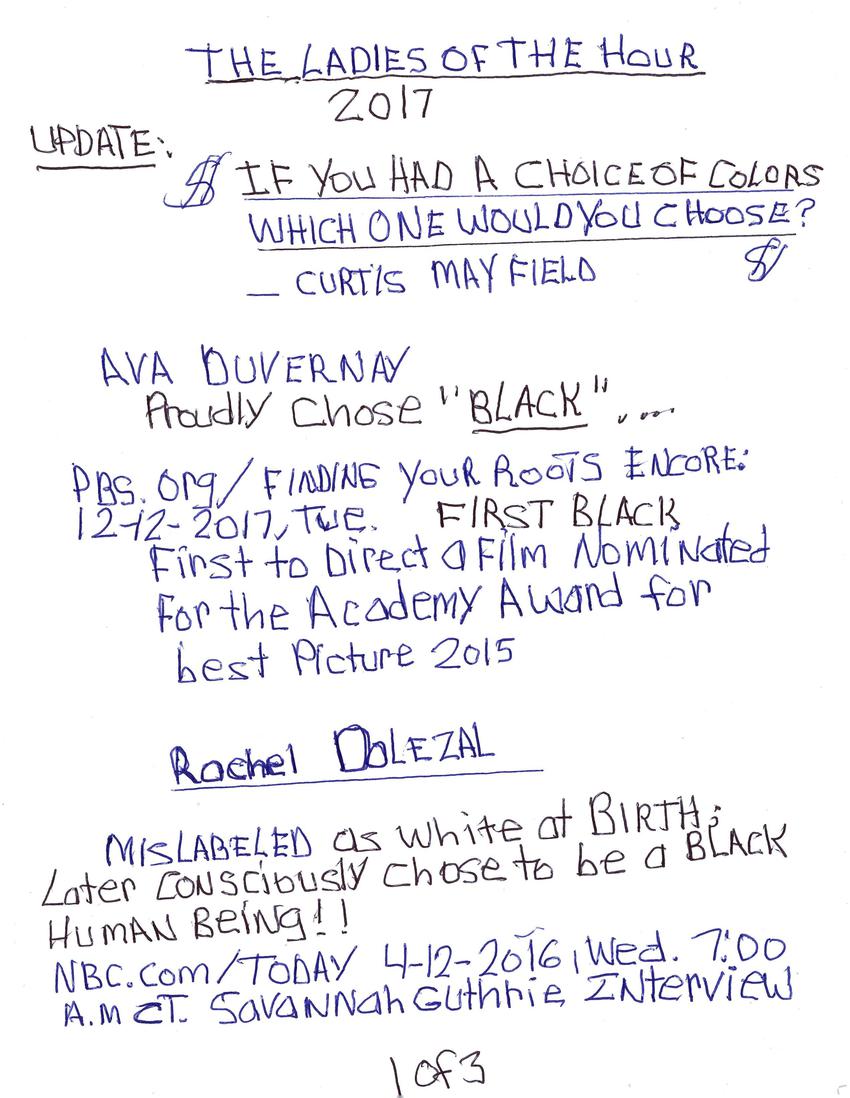 THE LADIES OF THE HOUR
2017
UPDATE:
$ IF YOU HAD A CHOICE OF COLORS
WHICH ONE WOULD YOU CHOOSE?
— CURTIS MAYFIELD $
AVA DUVERNAY
Proudly Chose "BLACK"....
PBS.Org/FINDING YOUR ROOTS ENCORE:
12-12-2017, TUE. FIRST BLACK
First to Direct a Film Nominated
For the Academy Award for
best Picture 2015
Rachel DOLEZAL
MISLABELED as White at BIRTH;
Later CONSCIOUSLY Chose to be a BLACK
HUMAN BEING!!
NBC.Com/TODAY 4-12-2016, Wed. 7:00
A.M CT. SAVANNAh Guthrie INterview
1 of 3